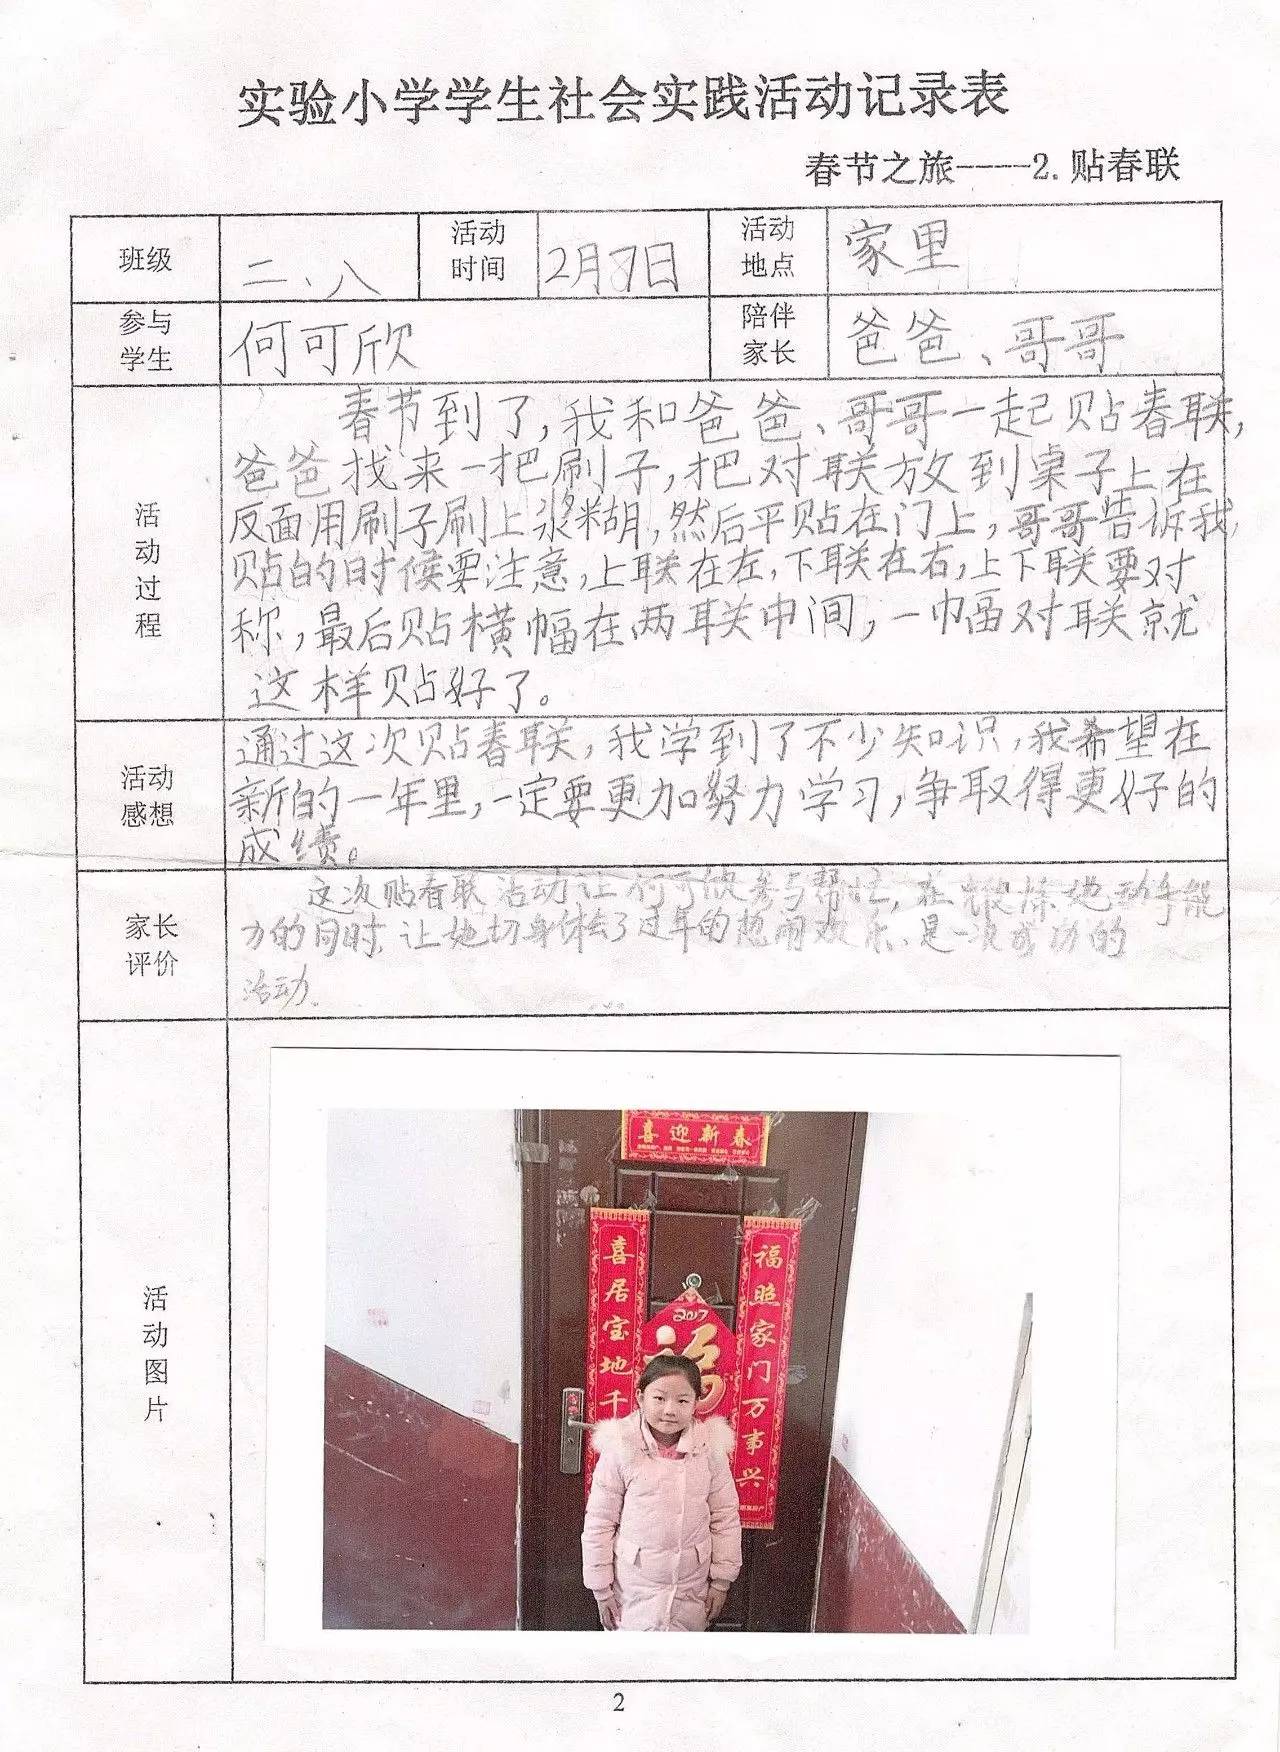 实验小学学生社会实践活动记录表
春节之旅----2.贴春联
班级 二、八 活动时间 2月7日 活动地点 家里
参与学生 何可欣 陪伴家长 爸爸、哥哥
活动过程
春节到了,我和爸爸、哥哥一起贴春联,
爸爸找来一把刷子,把对联放到桌子上在
反面用刷子刷上浆糊,然后平贴在门上,哥哥告诉我,
贴的时候要注意,上联在左,下联在右,上下联要对
称,最后贴横幅在两联中间,一幅对联就
这样贴好了。
活动感想
通过这次贴春联,我学到了不少知识,我希望在
新的一年里,一定要更加努力学习,争取得更好的
成绩。
家长评价
这次贴春联活动让何可欣参与帮忙,在锻炼她动手能
力的同时,让她切身体会了过年的热闹欢乐、是一次成功的
活动.
活动图片
喜迎新春
喜居宝地千
福照家门万事兴
2017
福
2